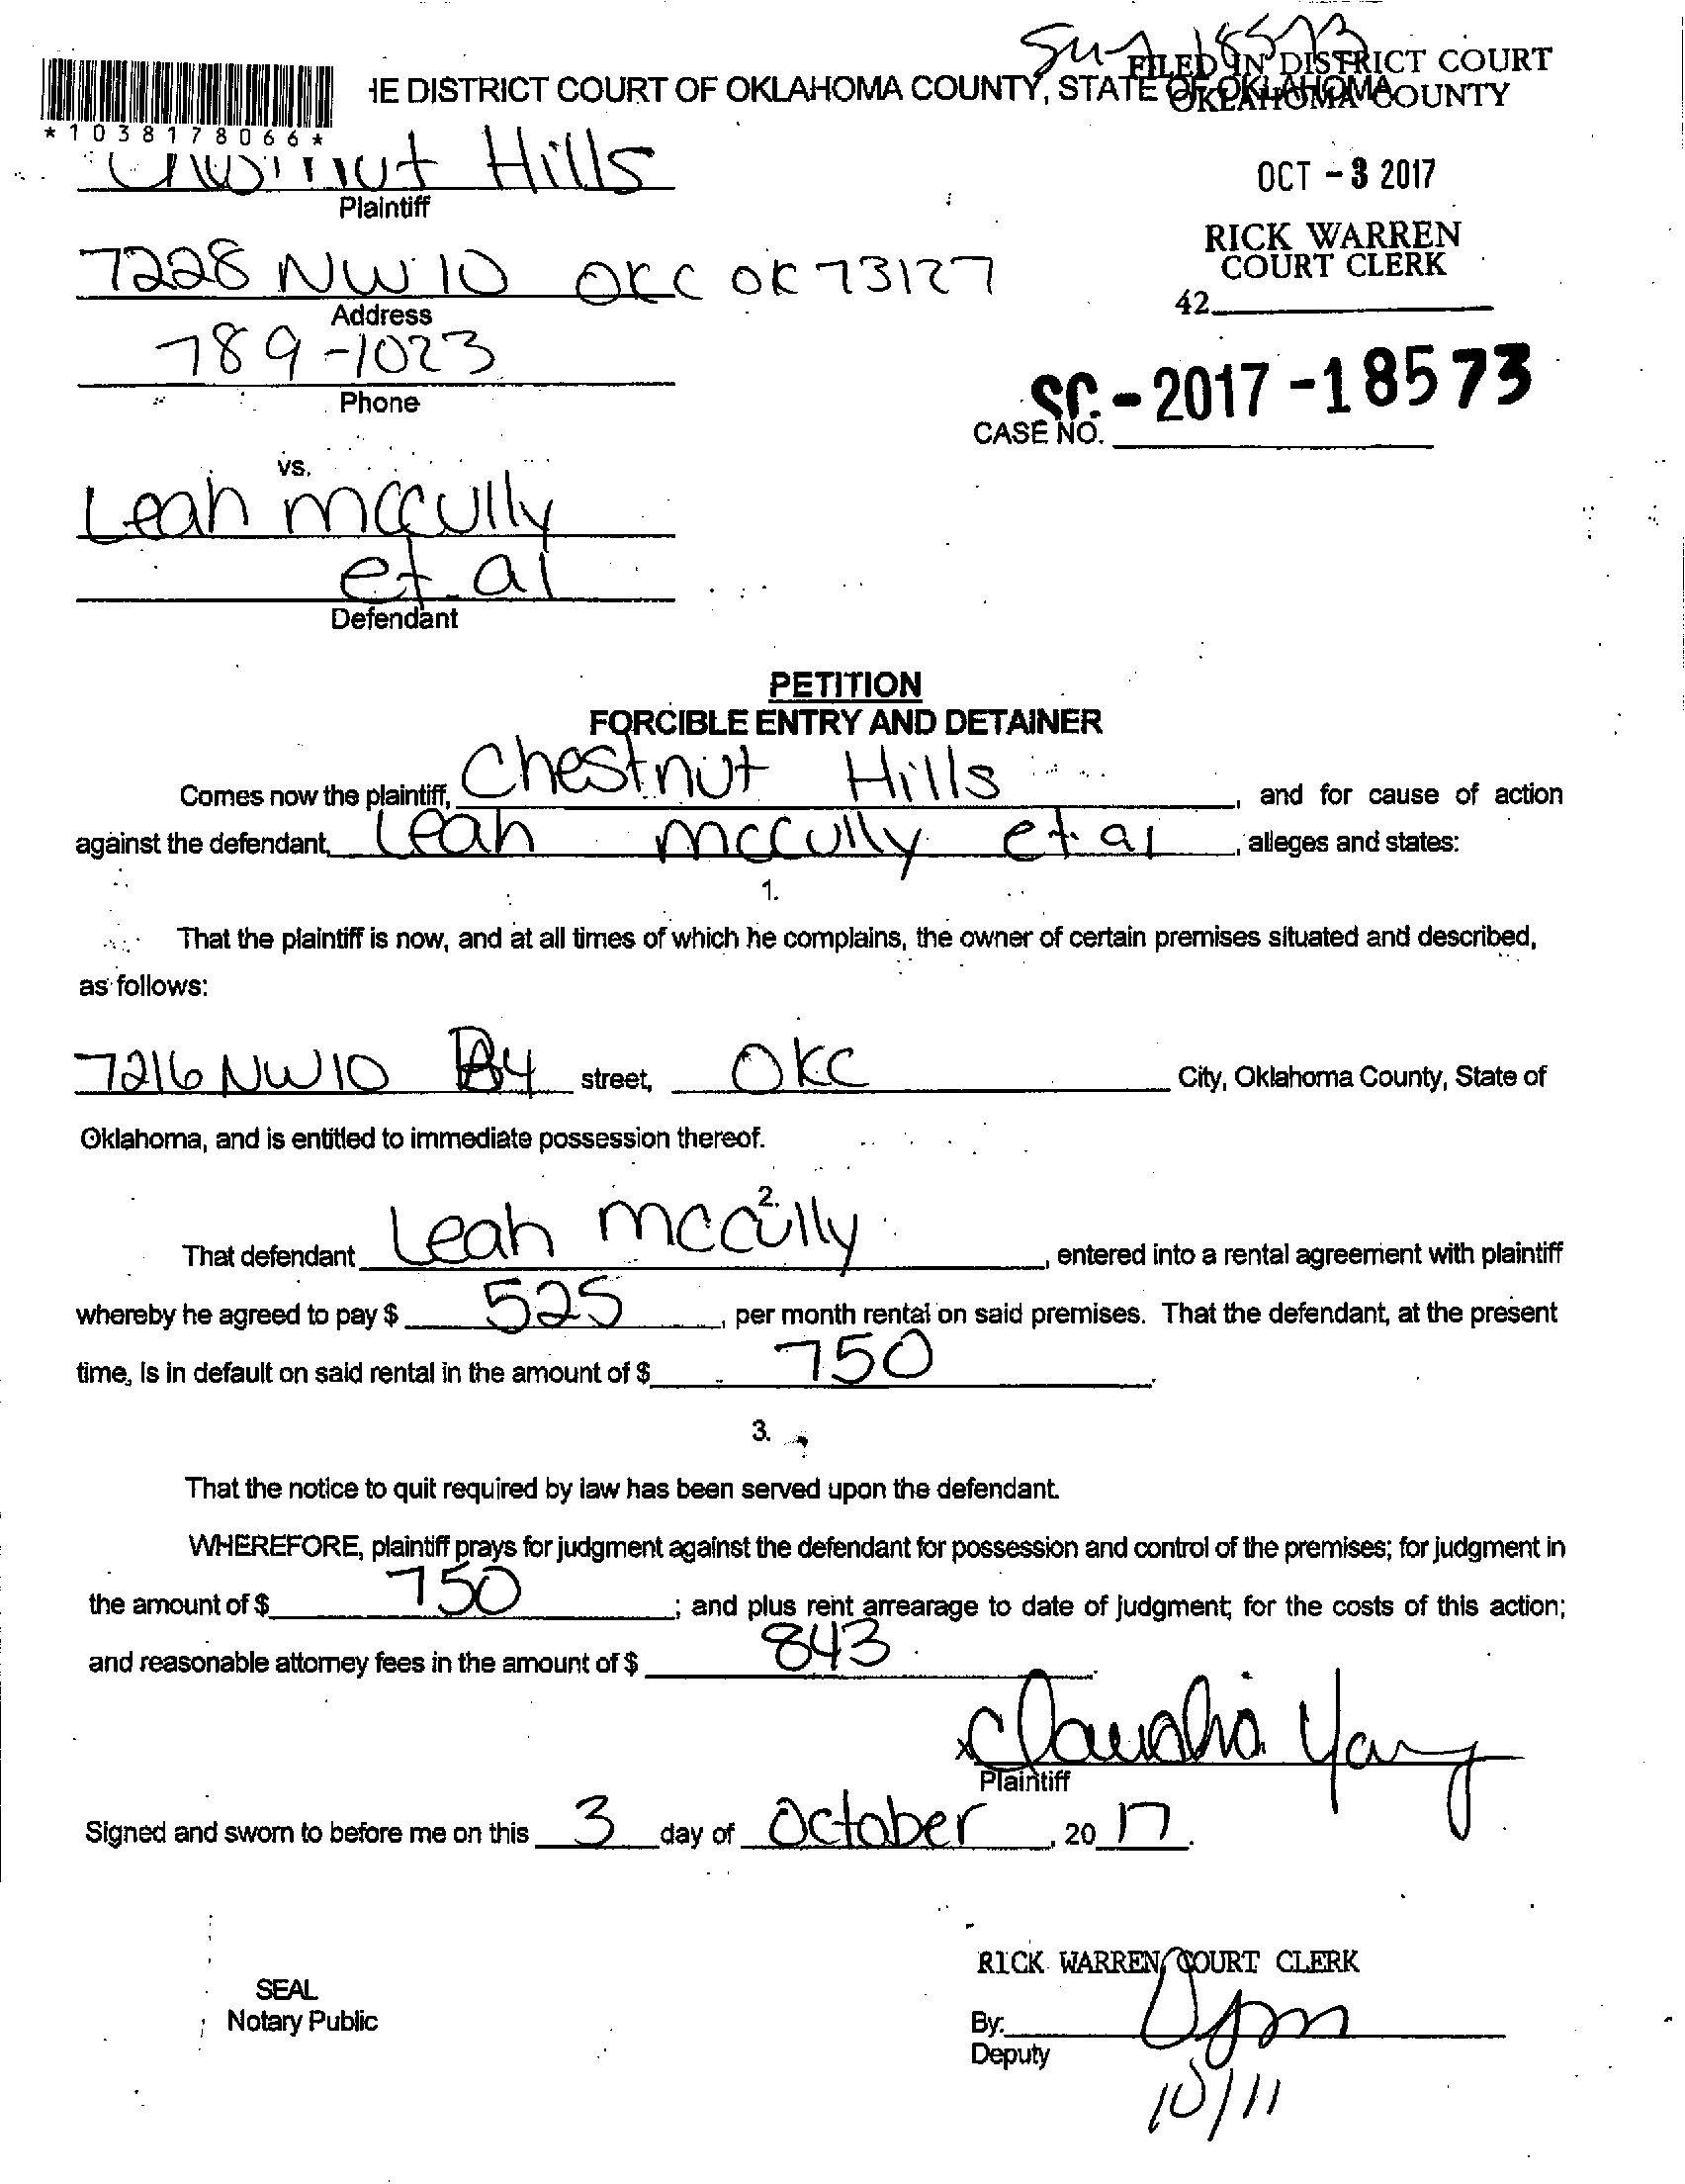 FILED IN DISTRICT COURT
OKLAHOMA COUNTY
HE DISTRICT COURT OF OKLAHOMA COUNTY, STATE OF OKLAHOMA
*1038178066*
Hills
Plaintiff
OCT - 3 2017
RICK WARREN
COURT CLERK
42
7228 NW 10 OKC OK 73127
Address
789-1023
Phone
SC - 2017 - 18573
CASE NO.
vs.
Leah mccully
et. al
Defendant
PETITION
FORCIBLE ENTRY AND DETAINER
Comes now the plaintiff, Chestnut Hills, and for cause of action
against the defendant, Leah mccully et. al, alleges and states:
1.
That the plaintiff is now, and at all times of which he complains, the owner of certain premises situated and described,
as follows:
7216 NW 10 B4 street, OKC City, Oklahoma County, State of
Oklahoma, and is entitled to immediate possession thereof.
2.
That defendant Leah mccully, entered into a rental agreement with plaintiff
whereby he agreed to pay $ 525, per month rental on said premises. That the defendant, at the present
time, is in default on said rental in the amount of $ 750.
3.
That the notice to quit required by law has been served upon the defendant.
WHEREFORE, plaintiff prays for judgment against the defendant for possession and control of the premises; for judgment in
the amount of $ 750; and plus rent arrearage to date of judgment; for the costs of this action;
and reasonable attorney fees in the amount of $ 843.
x Claudia Yang
Plaintiff
Signed and sworn to before me on this 3 day of October, 20 17.
RICK WARREN, COURT CLERK
SEAL
Notary Public
By:
Deputy
10/11